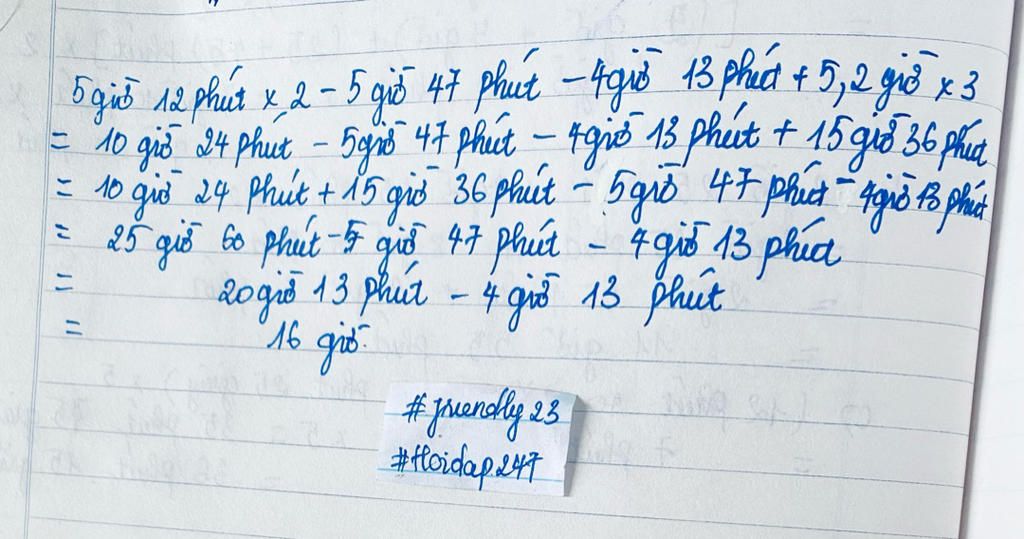 5 giờ 12 phút x 2 - 5 giờ 47 phút - 4 giờ 13 phút + 5,2 giờ x 3
= 10 giờ 24 phút - 5 giờ 47 phút - 4 giờ 13 phút + 15 giờ 36 phút
= 10 giờ 24 phút + 15 giờ 36 phút - 5 giờ 47 phút - 4 giờ 13 phút
= 25 giờ 60 phút - 5 giờ 47 phút - 4 giờ 13 phút
= 20 giờ 13 phút - 4 giờ 13 phút
= 16 giờ.
#friendly23
#Hoidap247